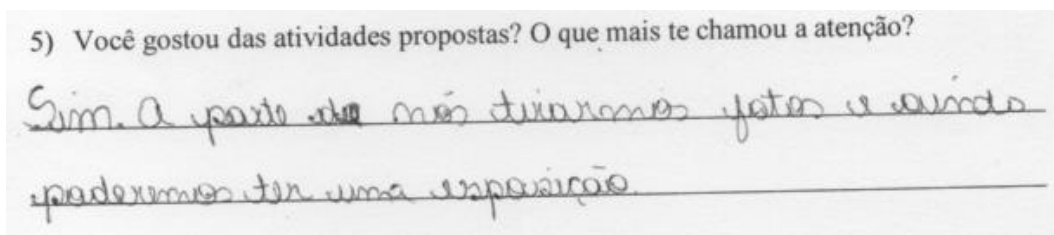 5) Você gostou das atividades propostas? O que mais te chamou a atenção?
Sim. A parte de nós tirarmos fotos e ainda
poderemos ter uma exposição.